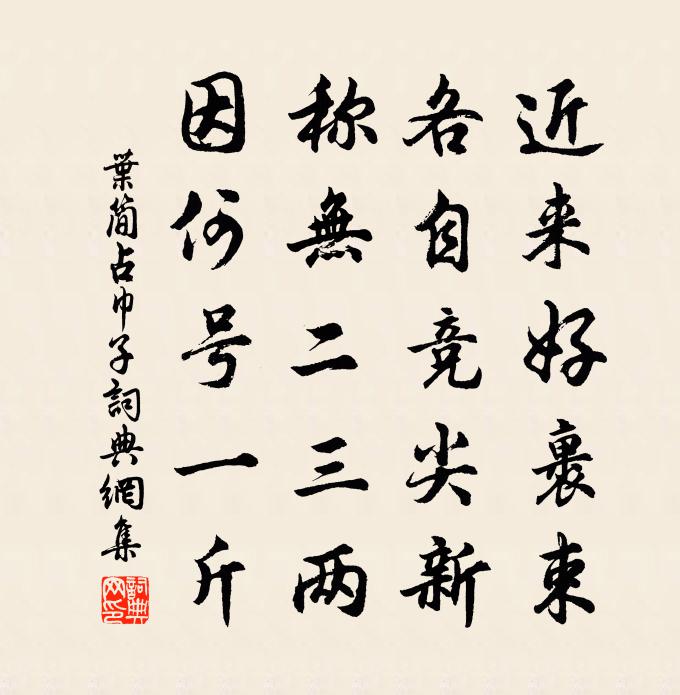 近来好裹束
各自竞尖新
称無二三两
因何号一斤
葉简占巾子詞典網集
詞典網印